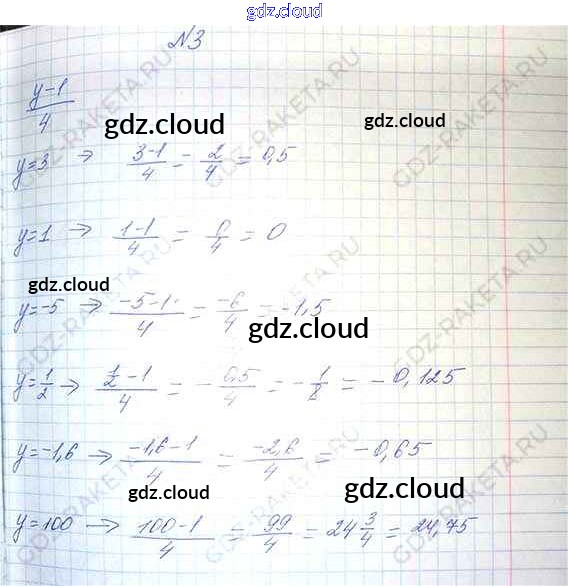 gdz.cloud
№3
GDZ-RAKETA.RU
(y-1)/4
gdz.cloud
gdz.cloud
y=3 → (3-1)/4 = 2/4 = 0,5
y=1 → (1-1)/4 = 0/4 = 0
gdz.cloud
y=-5 → (-5-1)/4 = -6/4 = -1,5
gdz.cloud
y=1/2 → (1/2-1)/4 = -0,5/4 = -1/8 = -0,125
y=-1,6 → (-1,6-1)/4 = -2,6/4 = -0,65
gdz.cloud
gdz.cloud
y=100 → (100-1)/4 = 99/4 = 24 3/4 = 24,75